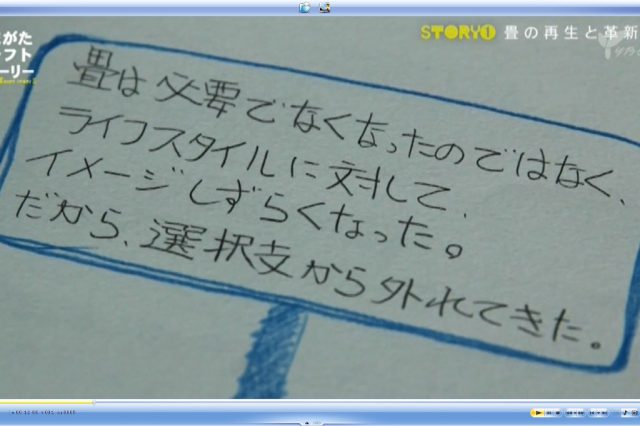 STORY1 畳の再生と革新
がた
フト
ーリー
畳は必要でなくなったのではなく、
ライフスタイルに対して、
イメージしずらくなった。
だから、選択支から外れてきた。